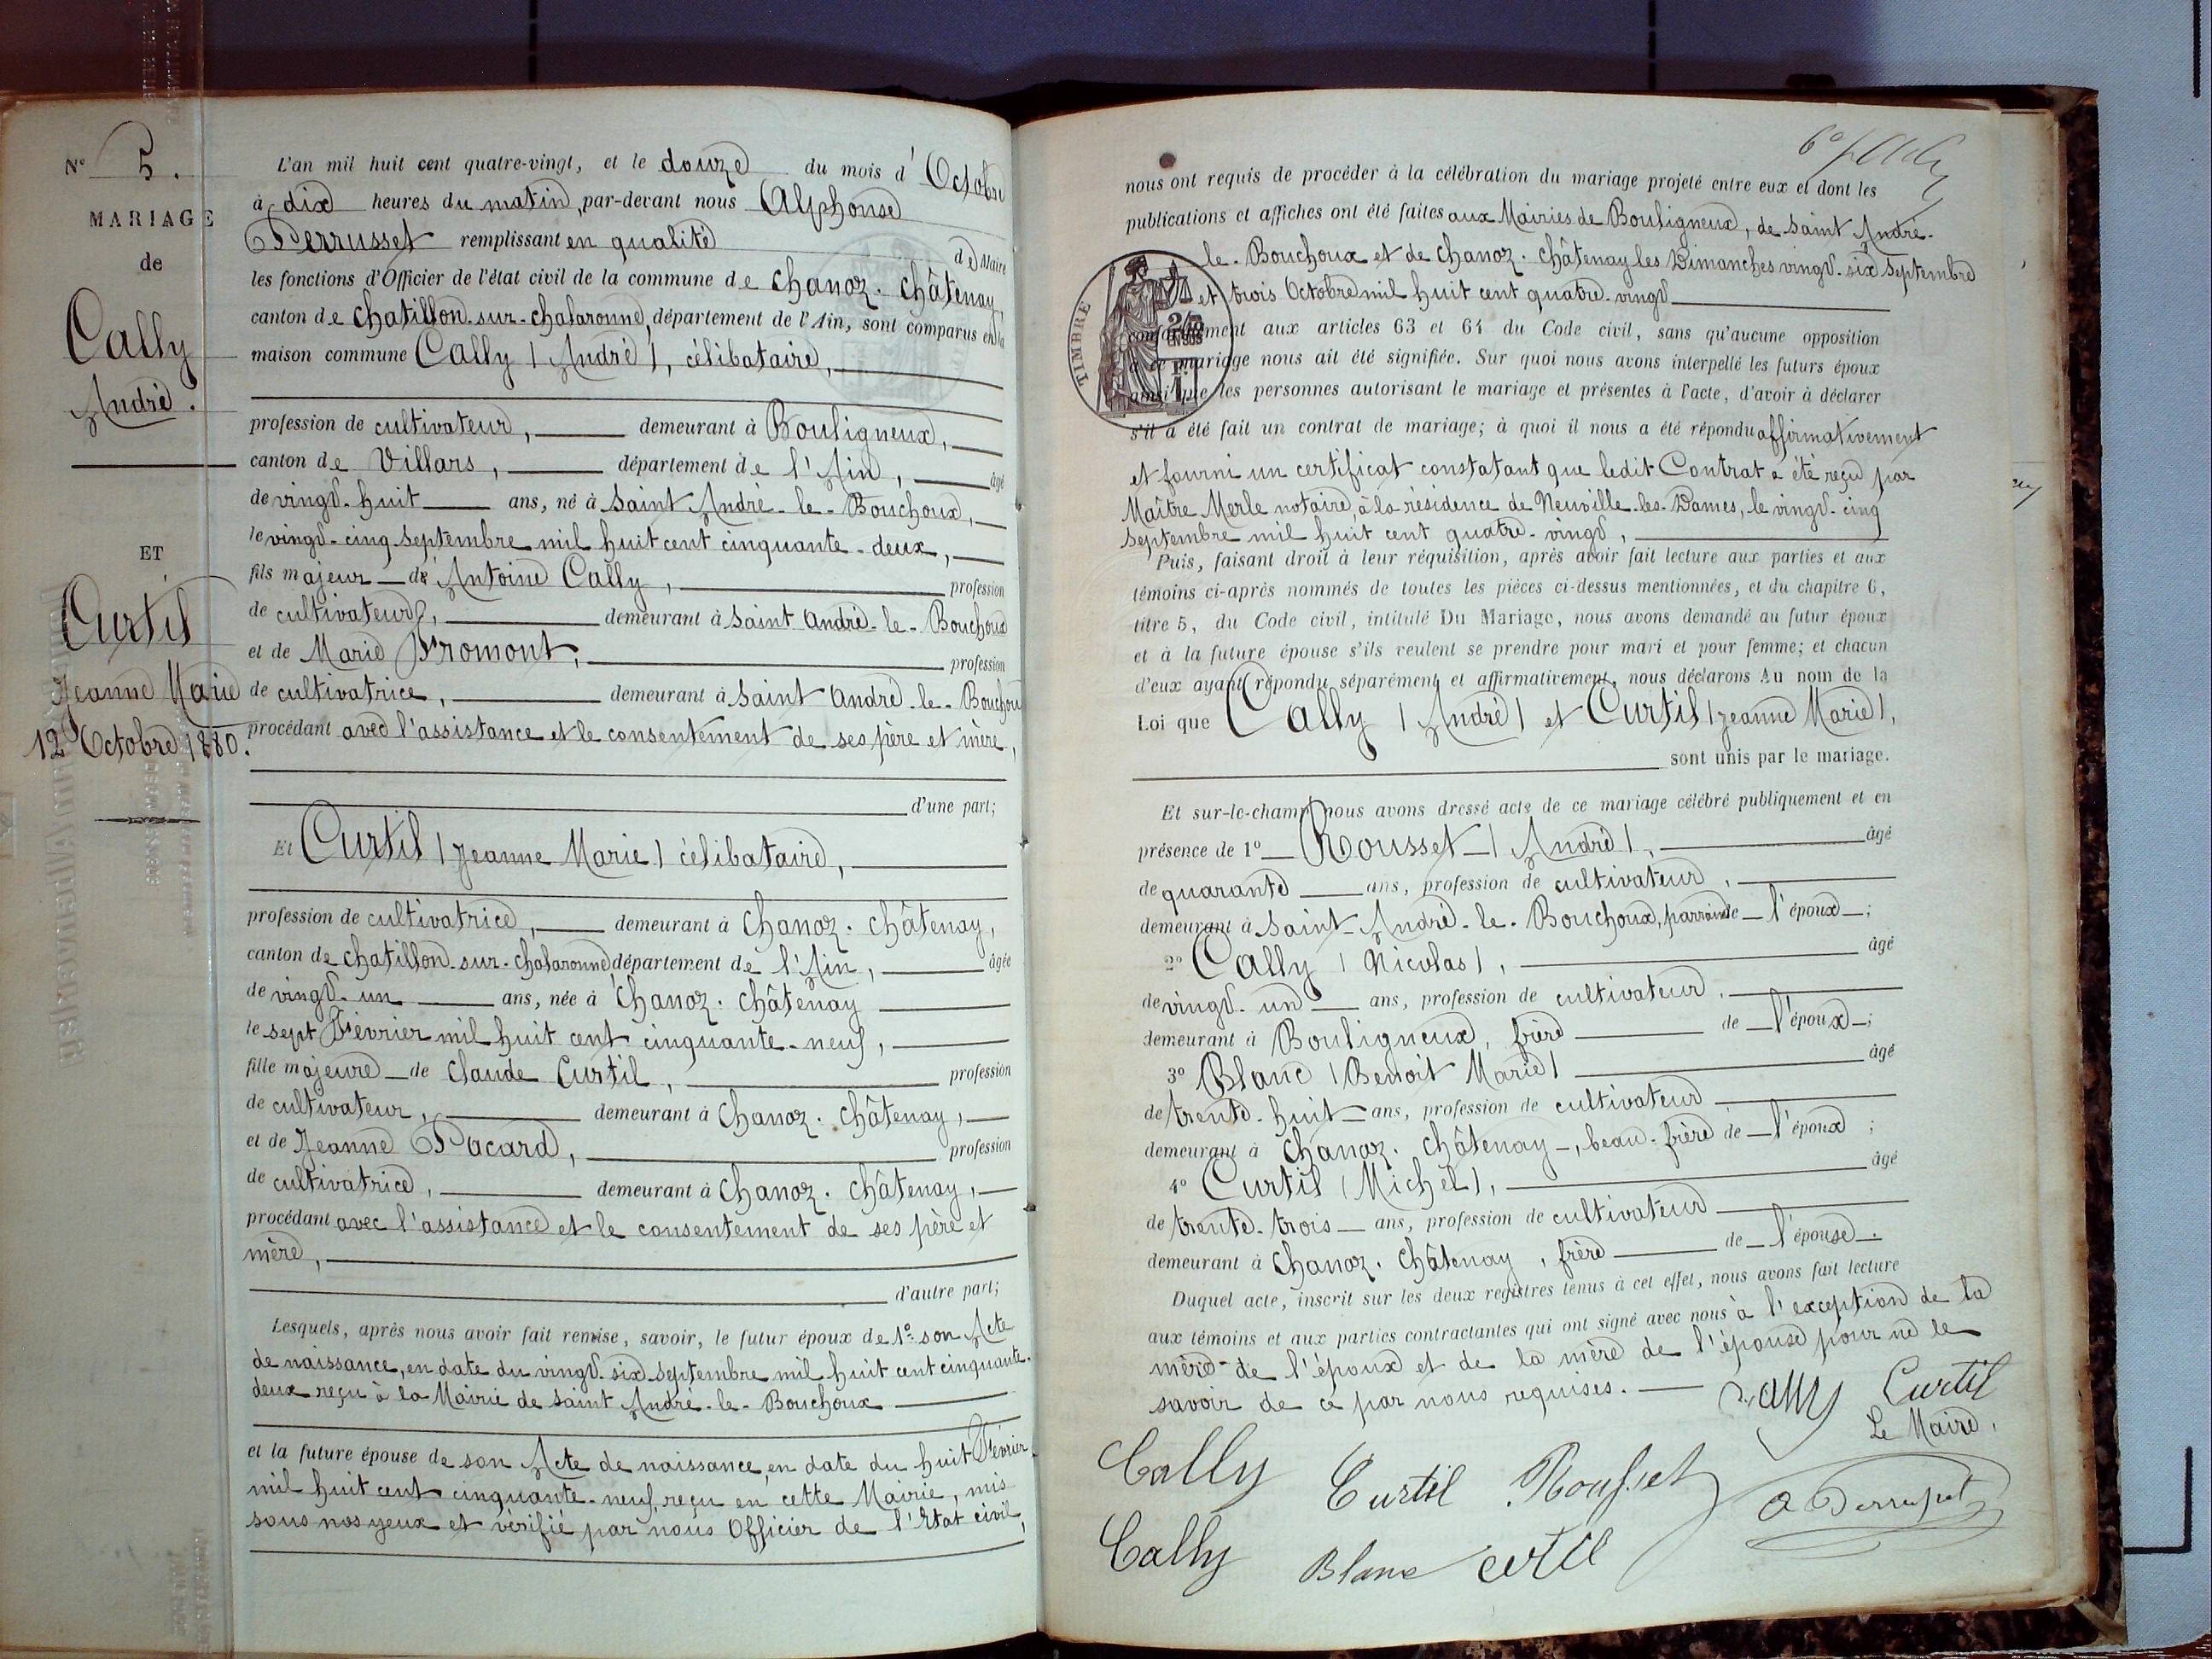 N° 5.
MARIAGE
de
Cally
André.
ET
Curtil
Jeanne Marie
12 Octobre 1880.
L'an mil huit cent quatre-vingt, et le douze du mois d'Octobre
à dix heures du matin, par-devant nous Alphonse
Perrusset remplissant en qualité de Maire
les fonctions d'Officier de l'état civil de la commune de Chanoz-Châtenay
canton de Chatillon-sur-Chalaronne, département de l'Ain, sont comparus en la
maison commune Cally (André), célibataire,
profession de cultivateur, demeurant à Bouligneux,
canton de Villars, département de l'Ain, âgé
de vingt-huit ans, né à Saint André-le-Bouchoux,
le vingt-cinq Septembre mil huit cent cinquante-deux,
fils majeur de Antoine Cally, profession
de cultivateur, demeurant à Saint André-le-Bouchoux
et de Marie Fromont, profession
de cultivatrice, demeurant à Saint André-le-Bouchoux
procédant avec l'assistance et le consentement de ses père et mère,
d'une part;
Et Curtil (Jeanne Marie) célibataire,
profession de cultivatrice, demeurant à Chanoz-Châtenay,
canton de Chatillon-sur-Chalaronne, département de l'Ain, âgée
de vingt-un ans, née à Chanoz-Châtenay
le sept Février mil huit cent cinquante-neuf,
fille majeure de Claude Curtil, profession
de cultivateur, demeurant à Chanoz-Châtenay,
et de Jeanne Pacard, profession
de cultivatrice, demeurant à Chanoz-Châtenay,
procédant avec l'assistance et le consentement de ses père et
mère,
d'autre part;
Lesquels, après nous avoir fait remise, savoir, le futur époux de 1° son Acte
de naissance, en date du vingt-six Septembre mil huit cent cinquante-
deux reçu à la Mairie de Saint André-le-Bouchoux
et la future épouse de son Acte de naissance, en date du huit Février
mil huit cent cinquante-neuf, reçu en cette Mairie, mis
sous nos yeux et vérifié par nous Officier de l'Etat civil,
nous ont requis de procéder à la célébration du mariage projeté entre eux et dont les
publications et affiches ont été faites aux Mairies de Bouligneux, de Saint André-
le-Bouchoux et de Chanoz-Châtenay les Dimanches vingt-six Septembre
et trois Octobre mil huit cent quatre-vingt
TIMBRE
conformément aux articles 63 et 64 du Code civil, sans qu'aucune opposition
à ce mariage nous ait été signifiée. Sur quoi nous avons interpellé les futurs époux
ainsi que les personnes autorisant le mariage et présentes à l'acte, d'avoir à déclarer
s'il a été fait un contrat de mariage; à quoi il nous a été répondu affirmativement
et fourni un certificat constatant que ledit Contrat a été reçu par
Maître Merle notaire, à la résidence de Neuville-les-Dames, le vingt-cinq
Septembre mil huit cent quatre-vingt,
Puis, faisant droit à leur réquisition, après avoir fait lecture aux parties et aux
témoins ci-après nommés de toutes les pièces ci-dessus mentionnées, et du chapitre 6,
titre 5, du Code civil, intitulé Du Mariage, nous avons demandé au futur époux
et à la future épouse s'ils veulent se prendre pour mari et pour femme; et chacun
d'eux ayant répondu séparément et affirmativement, nous déclarons Au nom de la
Loi que Cally (André) et Curtil (Jeanne Marie),
sont unis par le mariage.
Et sur-le-champ nous avons dressé acte de ce mariage célébré publiquement et en
présence de 1° Rousset (André), âgé
de quarante ans, profession de cultivateur,
demeurant à Saint-André-le-Bouchoux, parrain de l'époux;
2° Cally (Nicolas), âgé
de vingt-un ans, profession de cultivateur,
demeurant à Bouligneux, frère de l'époux;
3° Blanc (Benoit Marie) âgé
de trente-huit ans, profession de cultivateur
demeurant à Chanoz-Châtenay, beau-frère de l'époux;
4° Curtil (Michel), âgé
de trente-trois ans, profession de cultivateur
demeurant à Chanoz-Châtenay, frère de l'épouse.
Duquel acte, inscrit sur les deux registres tenus à cet effet, nous avons fait lecture
aux témoins et aux parties contractantes qui ont signé avec nous à l'exception de la
mère de l'époux et de la mère de l'épouse pour ne le
savoir de ce par nous requises. Cally Curtil
Le Maire,
Cally Curtil Rousset A Perrusset
Cally Blanc